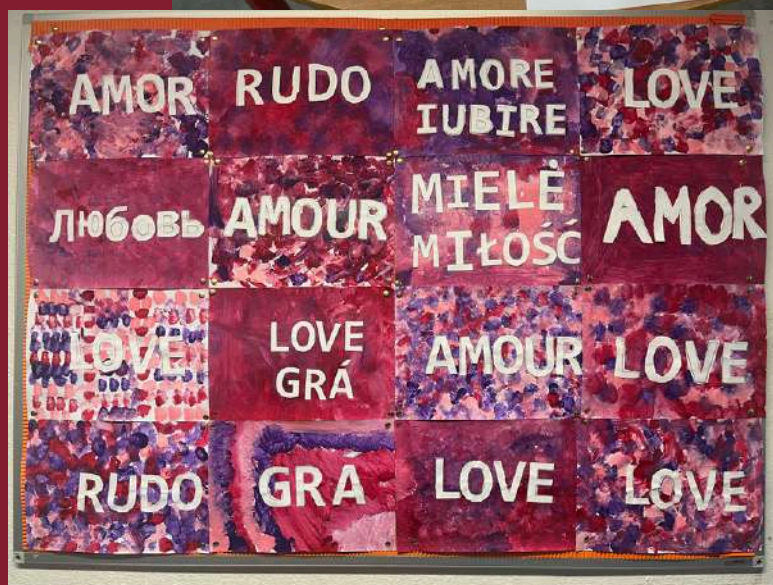 AMOR
RUDO
AMORE
IUBIRE
LOVE
ЛЮбОВЬ
AMOUR
MIELĖ
MIŁOŚĆ
AMOR
LOVE
LOVE
GRÁ
AMOUR
LOVE
RUDO
GRA
LOVE
LOVE